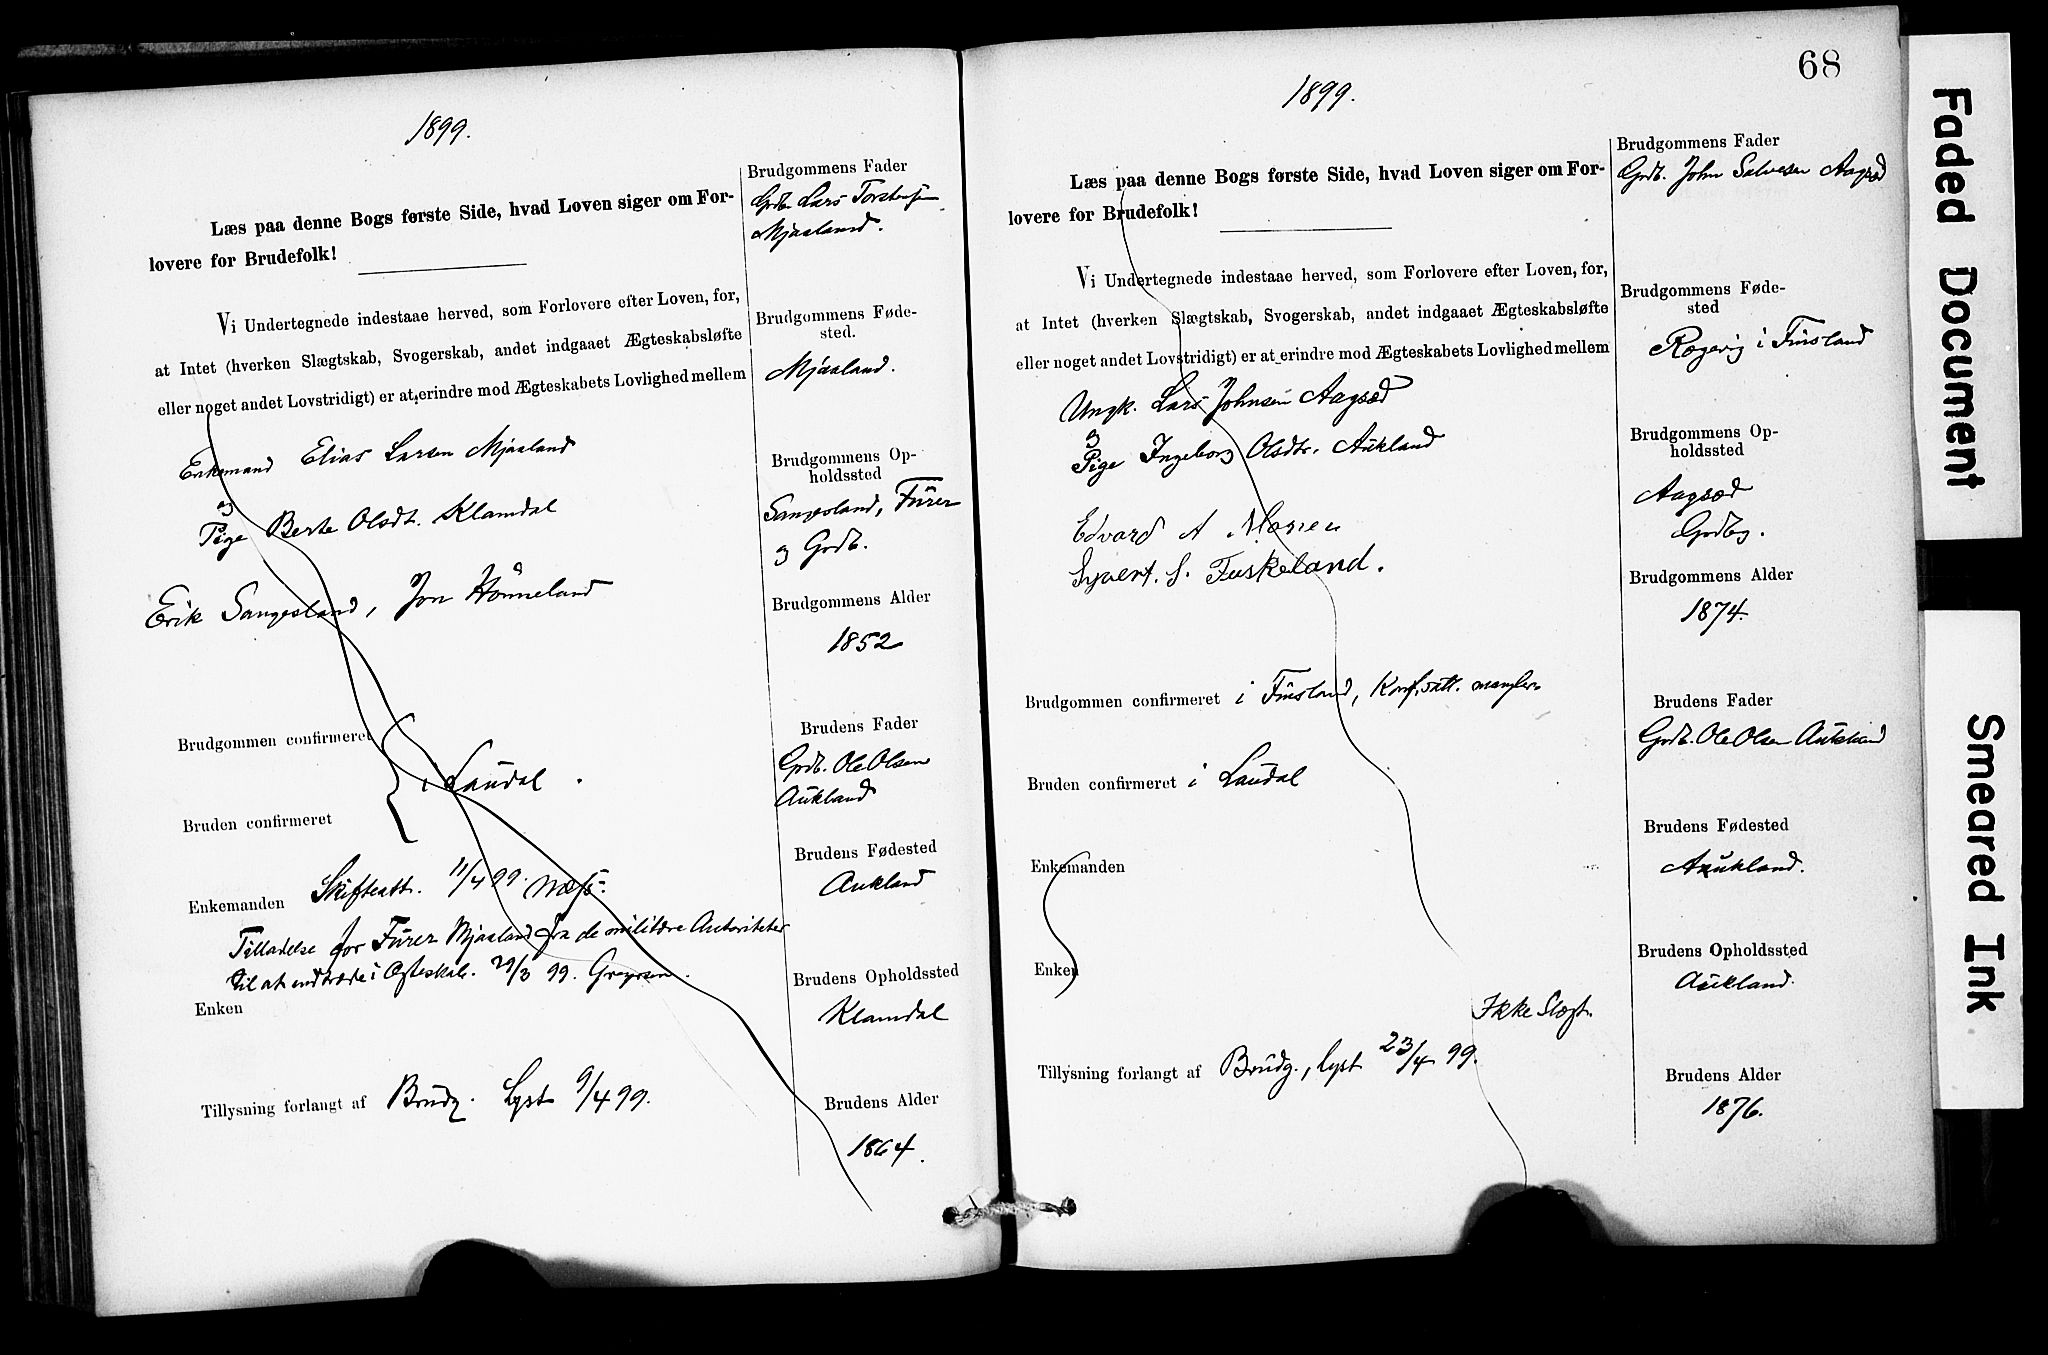 1899.
Læs paa denne Bogs første Side, hvad Loven siger om For-
lovere for Brudefolk!
Vi Undertegnede indestaae herved, som Forlovere efter Loven, for,
at Intet (hverken Slægtskab, Svogerskab, andet indgaaet Ægteskabsløfte
eller noget andet Lovstridigt) er at erindre mod Ægteskabets Lovlighed mellem
Enkemand Elias Larsen Mjaaland
og
Pige Berte Olsdt. Klamdal
Erik Sangesland, Jon Hönneland
Brudgommen confirmeret
i Laudal.
Bruden confirmeret
Enkemanden Skifteatt. 11/4 99. Næss.
Tilladelse for Furer Mjaaland fra de militære Autoriteter
til at indtræde i Ægteskab. 29/3 99.
Enken
Tillysning forlangt af Brudg. Lyst 9/4 99.
Brudgommens Fader
Grdb. Lars Torstensen
Mjaaland.
Brudgommens Føde-
sted.
Mjaaland.
Brudgommens Op-
holdssted
Sangesland, Furer
og Grdb.
Brudgommens Alder
1852
Brudens Fader
Grdb. Ole Olsen
Aukland
Brudens Fødested
Aukland
Brudens Opholdssted
Klamdal
Brudens Alder
1864.
68
1899.
Læs paa denne Bogs første Side, hvad Loven siger om For-
lovere for Brudefolk!
Vi Undertegnede indestaae herved, som Forlovere efter Loven, for,
at Intet (hverken Slægtskab, Svogerskab, andet indgaaet Ægteskabsløfte
eller noget andet Lovstridigt) er at erindre mod Ægteskabets Lovlighed mellem
Ungk. Lars Johnsen Aagsæd
og
Pige Ingeborg Olsdtr. Aukland
Edvard A
Syvert. S. Fuskeland.
Brudgommen confirmeret i Finsland, Konf.att. mangler
Bruden confirmeret i Laudal
Enkemanden
Enken
Ikke Slægt.
Tillysning forlangt af Brudg., lyst 23/4 99.
Brudgommens Fader
Grdb. John Salvesen Aagsæd
Brudgommens Føde-
sted
i Finsland
Brudgommens Op-
holdssted
Aagsæd
Brudgommens Alder
1874.
Brudens Fader
Grdb. Ole Olsen Aukland
Brudens Fødested
Aukland.
Brudens Opholdssted
Aukland.
Brudens Alder
1876.
Faded Document
Smeared Ink